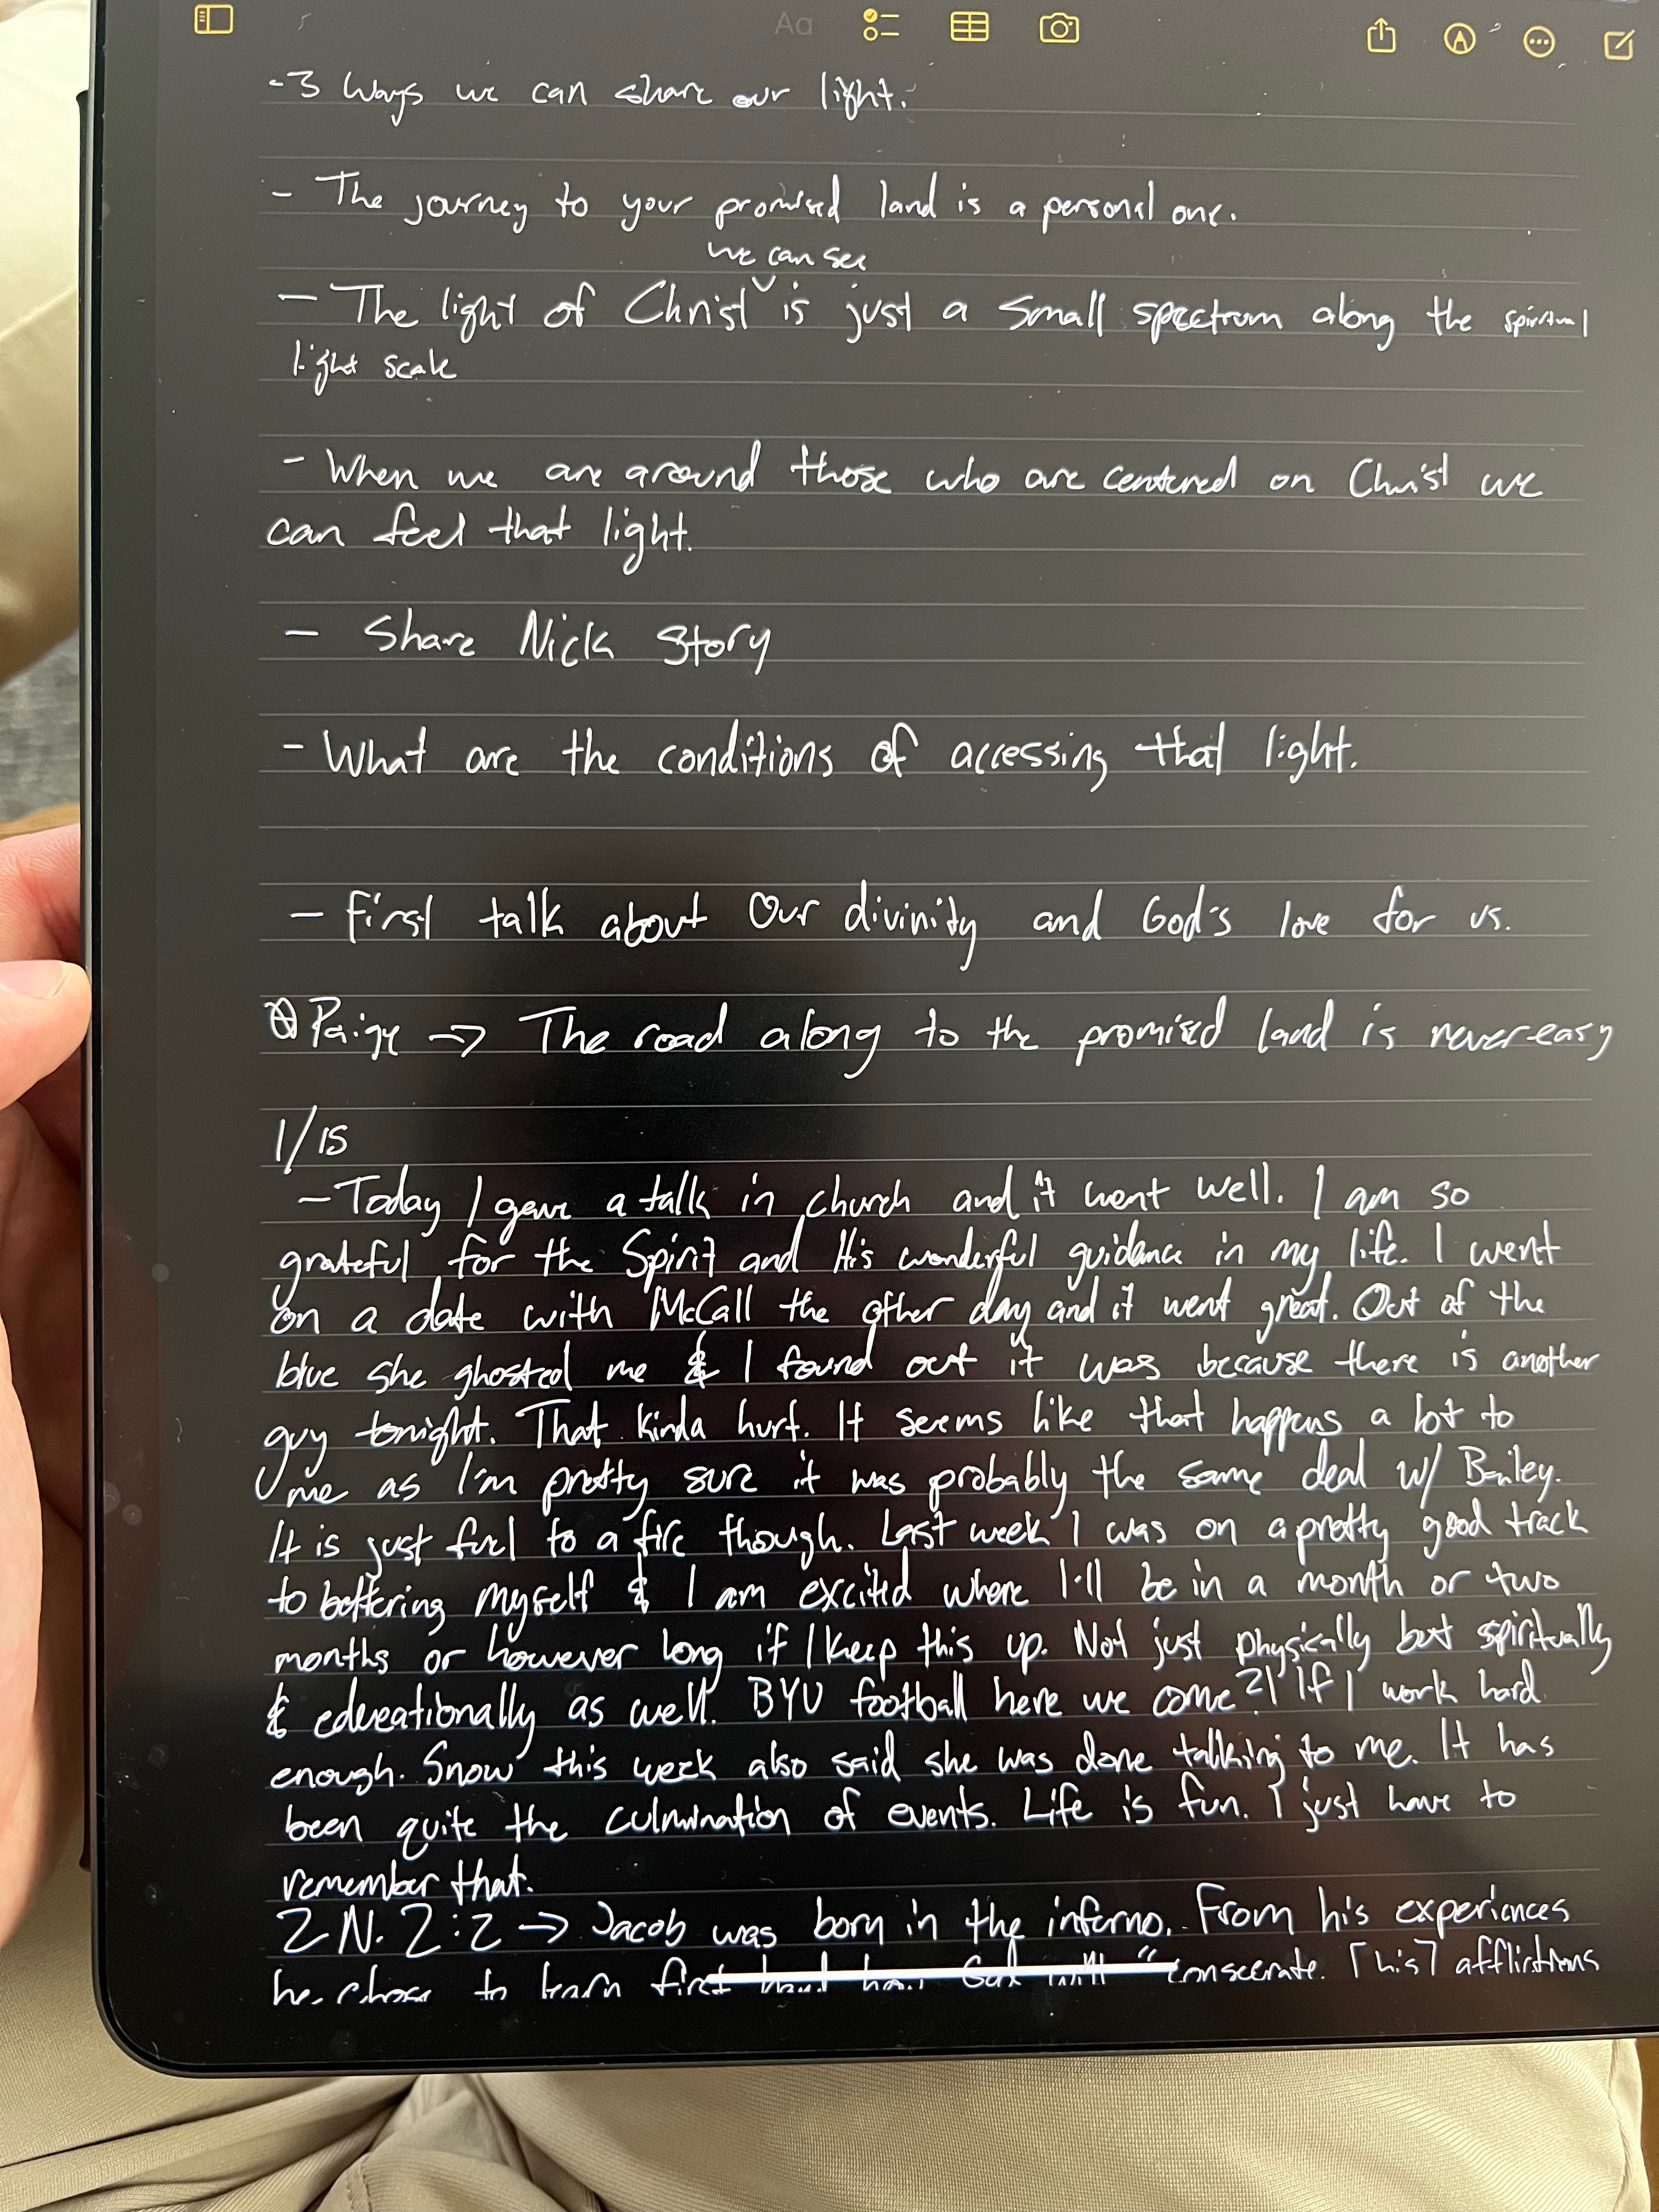 Aa
-3 Ways we can share our light.
- The journey to your promised land is a personal one.
we can see
- The light of Christ ˅ is just a small spectrum along the spiritual
light scale
- When we are around those who are centered on Christ we
can feel that light.
- Share Nick Story
- What are the conditions of accessing that light.
- First talk about Our divinity and God's love for us.
Paige → The road along to the promised land is never easy
1/15
- Today I gave a talk in church and it went well. I am so
grateful for the Spirit and His wonderful guidance in my life. I went
on a date with McCall the other day and it went great. Out of the
blue she ghosted me & I found out it was because there is another
guy tonight. That kinda hurt. It seems like that happens a lot to
me as I'm pretty sure it was probably the same deal w/ Bailey.
It is just fuel to a fire though. Last week I was on a pretty good track
to bettering myself & I am excited where I'll be in a month or two
months or however long if I keep this up. Not just physically but spiritually
& educationally as well. BYU football here we come?! If I work hard
enough. Snow this week also said she was done talking to me. It has
been quite the culmination of events. Life is fun. I just have to
remember that.
2 N. 2:2 → Jacob was born in the inferno. From his experiences
he chose to learn first hand how God will "consecrate [his] afflictions